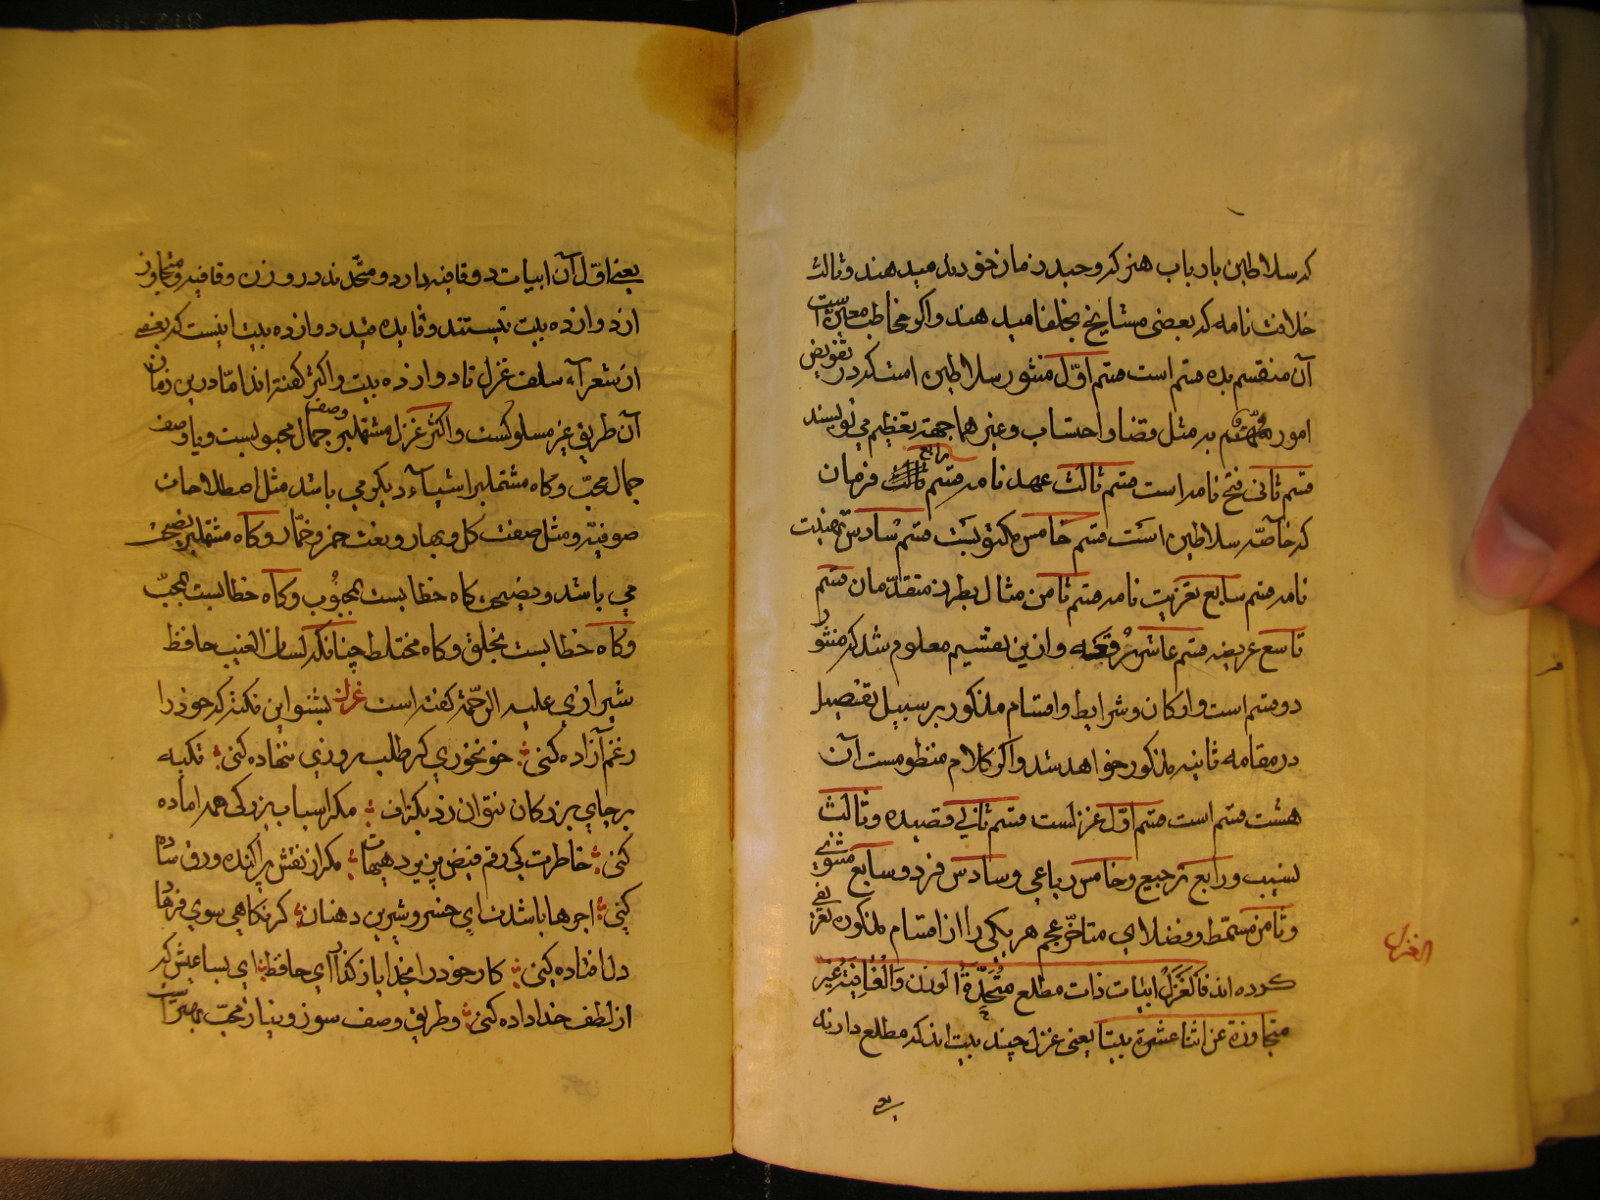 که سلاطین بارباب هنر که وحید زمان خود اند میدهند و ثالث
خلافت نامه که بعضی مشایخ بخلفا میدهند و اگر مخاطب معین است
آن منقسم بده قسم است قسم اوّل منشور سلاطین است که در تفویض
امور به مثل قضا و احتساب و غیرهما جهة تعظیم می نویسند
قسم ثانی فتح نامه است قسم ثالث عهد نامه قسم رابع فرمان
که خاصّه سلاطین است قسم خامس مکتوبست قسم سادس تهنیت
نامه قسم سابع تعزیت نامه قسم ثامن مثال بطرز متقدّمان قسم
تاسع عریضه قسم عاشر رُقعَه و ازین تقسیم معلوم شد که منشور
دو قسم است و ارکان و شرایط و اقسام مذکور بر سبیل تفصیل
در مقامه ثانیه مذکور خواهد شد و اگر کلام منظومست آن
هشت قسم است قسم اوّل غزلست قسم ثانی قصیده و ثالث
نسیب و رابع ترجیع و خامس رباعی و سادس فرد و سابع مثنوی
و ثامن مسمّط و فضلای متاخّر عجم هر یکی را از اقسام مذکوره تعریفی
کرده اند فالغزل ابیات ذات مطلع مُتّحدةُ الوزن والقافیة غیر
متجاوزة عن اثنا عشرة بیتا یعنی غزل چند بیت اند که مطلع دارند
الغزل
یعنی اوّل آن ابیات دو قافیه دارد و متّحدند در وزن و قافیه و متجاوز
از دوازده بیت نیستند و فایده قید دوازده بیت اینست که بعضی
از شعرآء سلف غزل تا دوازده بیت و اکثر گفته اند امّا درین زمان
آن طریق غیر مسلوکست و اکثر غزل مشتمل بر وصف جمال محبوبست و یا وصف
جمال محبّ و گاه مشتمل بر اشیآء دیگر می باشد مثل اصطلاحات
صوفیّه و مثل صفت گل و بهار و نعت خمر و خمّار و گاه مشتمل بر نصیحت
می باشد و نصیحت گاه خطابست بمحبُوب و گاه خطابست بمحبّ
و گاه خطابست بخلق و گاه مختلط چنانکه لسان الغیب حافظ
شیرازی علیه الرّحمة گفته است غزل بشنو این نکته که خود را
زغم آزاده کنی خون خوری گر طلب روزی ننهاده کنی تکیه
بر جای بزرگان نتوان زد بگزاف مگر اسباب بزرگی همه اماده
کنی خاطرت کی رقم فیض پزیرد هیهات مگر از نقش پراکنده ورق ساده
کنی اجرها باشدت ای خسرو شیرین دهنان گر نگاهی سوی فرهاد
دل افتاده کنی کار خود را بخدا باز گذاری حافظ ای بسا عیش که
از لطف خدا داده کنی و طریق وصف سوز و نیاز محبّ